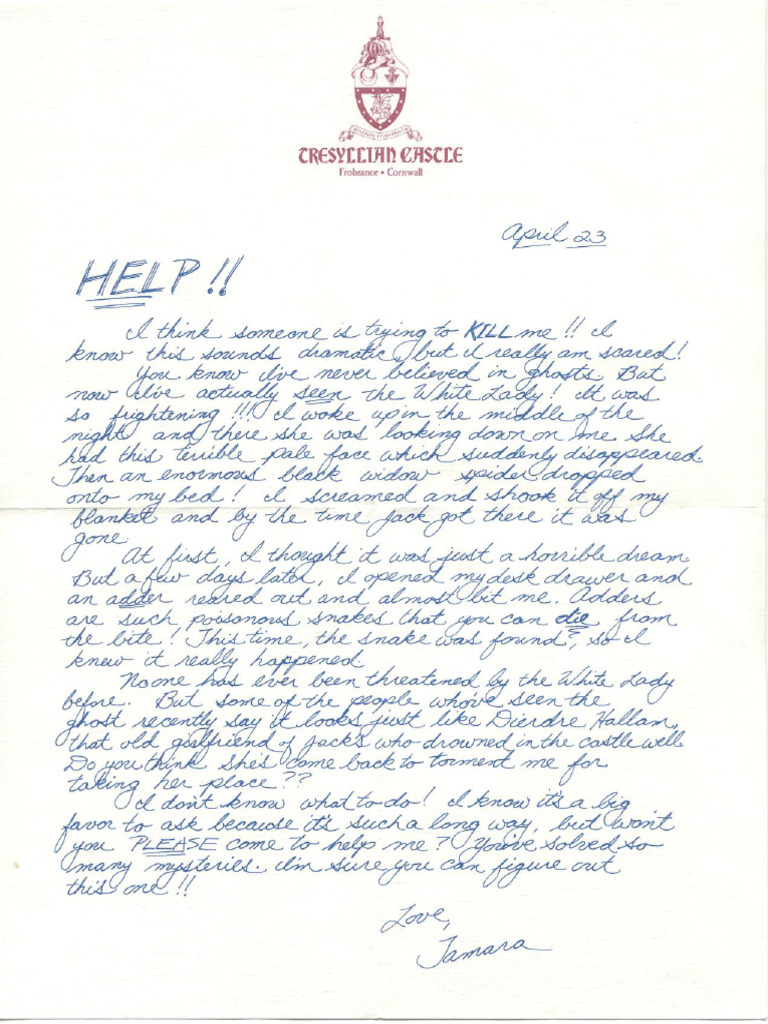 TRESYLLIAN CASTLE
Frobzance • Cornwall
April 23
HELP!!
I think someone is trying to KILL me!! I
know this sounds dramatic, but I really am scared!
You know I've never believed in ghosts. But
now I've actually seen the White Lady! It was
so frightening!!! I woke up in the middle of the
night and there she was looking down on me. She
had this terrible pale face which suddenly disappeared.
Then an enormous black widow spider dropped
onto my bed! I screamed and shook it off my
blanket and by the time Jack got there it was
gone.
At first, I thought it was just a horrible dream.
But a few days later, I opened my desk drawer and
an adder reared out and almost bit me. Adders
are such poisonous snakes that you can die from
the bite! This time, the snake was found, so I
knew it really happened.
No one has ever been threatened by the White Lady
before. But some of the people who've seen the
ghost recently say it looks just like Dierdre Hallam,
that old girlfriend of Jack's who drowned in the castle well.
Do you think she's come back to torment me for
taking her place??
I don't know what to do! I know it's a big
favor to ask because it's such a long way, but won't
you PLEASE come to help me? You've solved so
many mysteries. I'm sure you can figure out
this one!!
Love,
Tamara